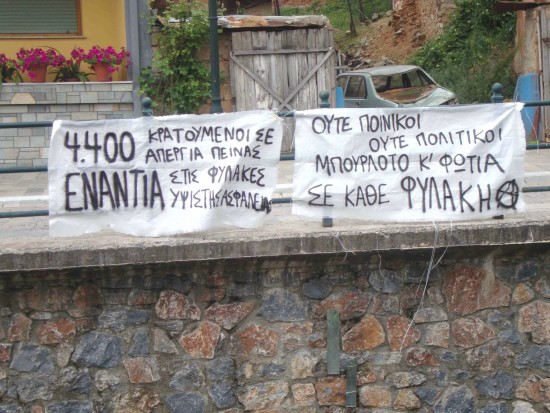 4.400 ΚΡΑΤΟΥΜΕΝΟΙ ΣΕ
ΑΠΕΡΓΙΑ ΠΕΙΝΑΣ
ΕΝΑΝΤΙΑ ΣΤΙΣ ΦΥΛΑΚΕΣ
ΥΨΙΣΤΗΣ ΑΣΦΑΛΕΙΑΣ
ΟΥΤΕ ΠΟΙΝΙΚΟΙ
ΟΥΤΕ ΠΟΛΙΤΙΚΟΙ
ΜΠΟΥΡΛΟΤΟ Κ' ΦΩΤΙΑ
ΣΕ ΚΑΘΕ ΦΥΛΑΚΗ